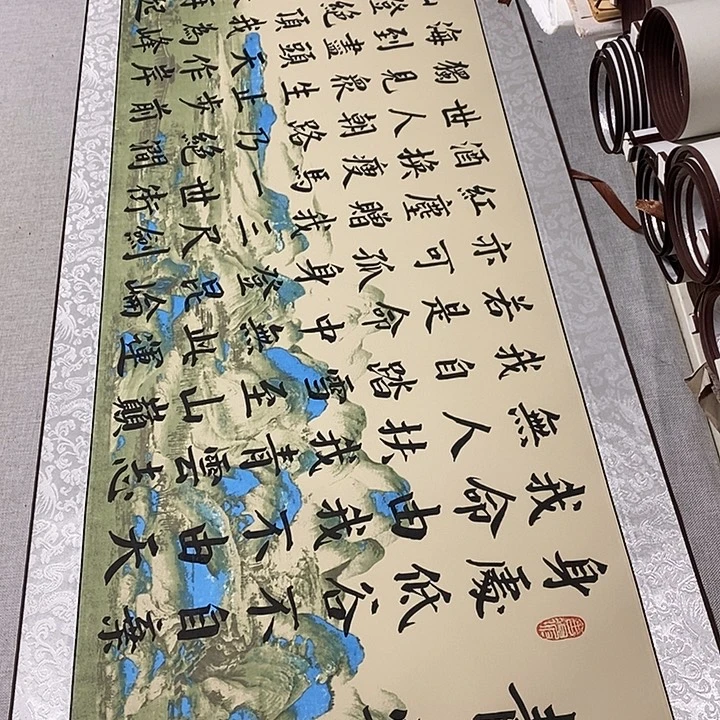 身處低谷不自棄
我命由我不由天
無人扶我青雲志
我自踏雪至山巔
若是命中無此運
亦可孤身登昆論
紅塵贈我三尺劍
酒換瘦馬一世術
世人朝路乃絕澗
獨見眾生止步前
海到盡頭天作岸
山登絕頂我為峰